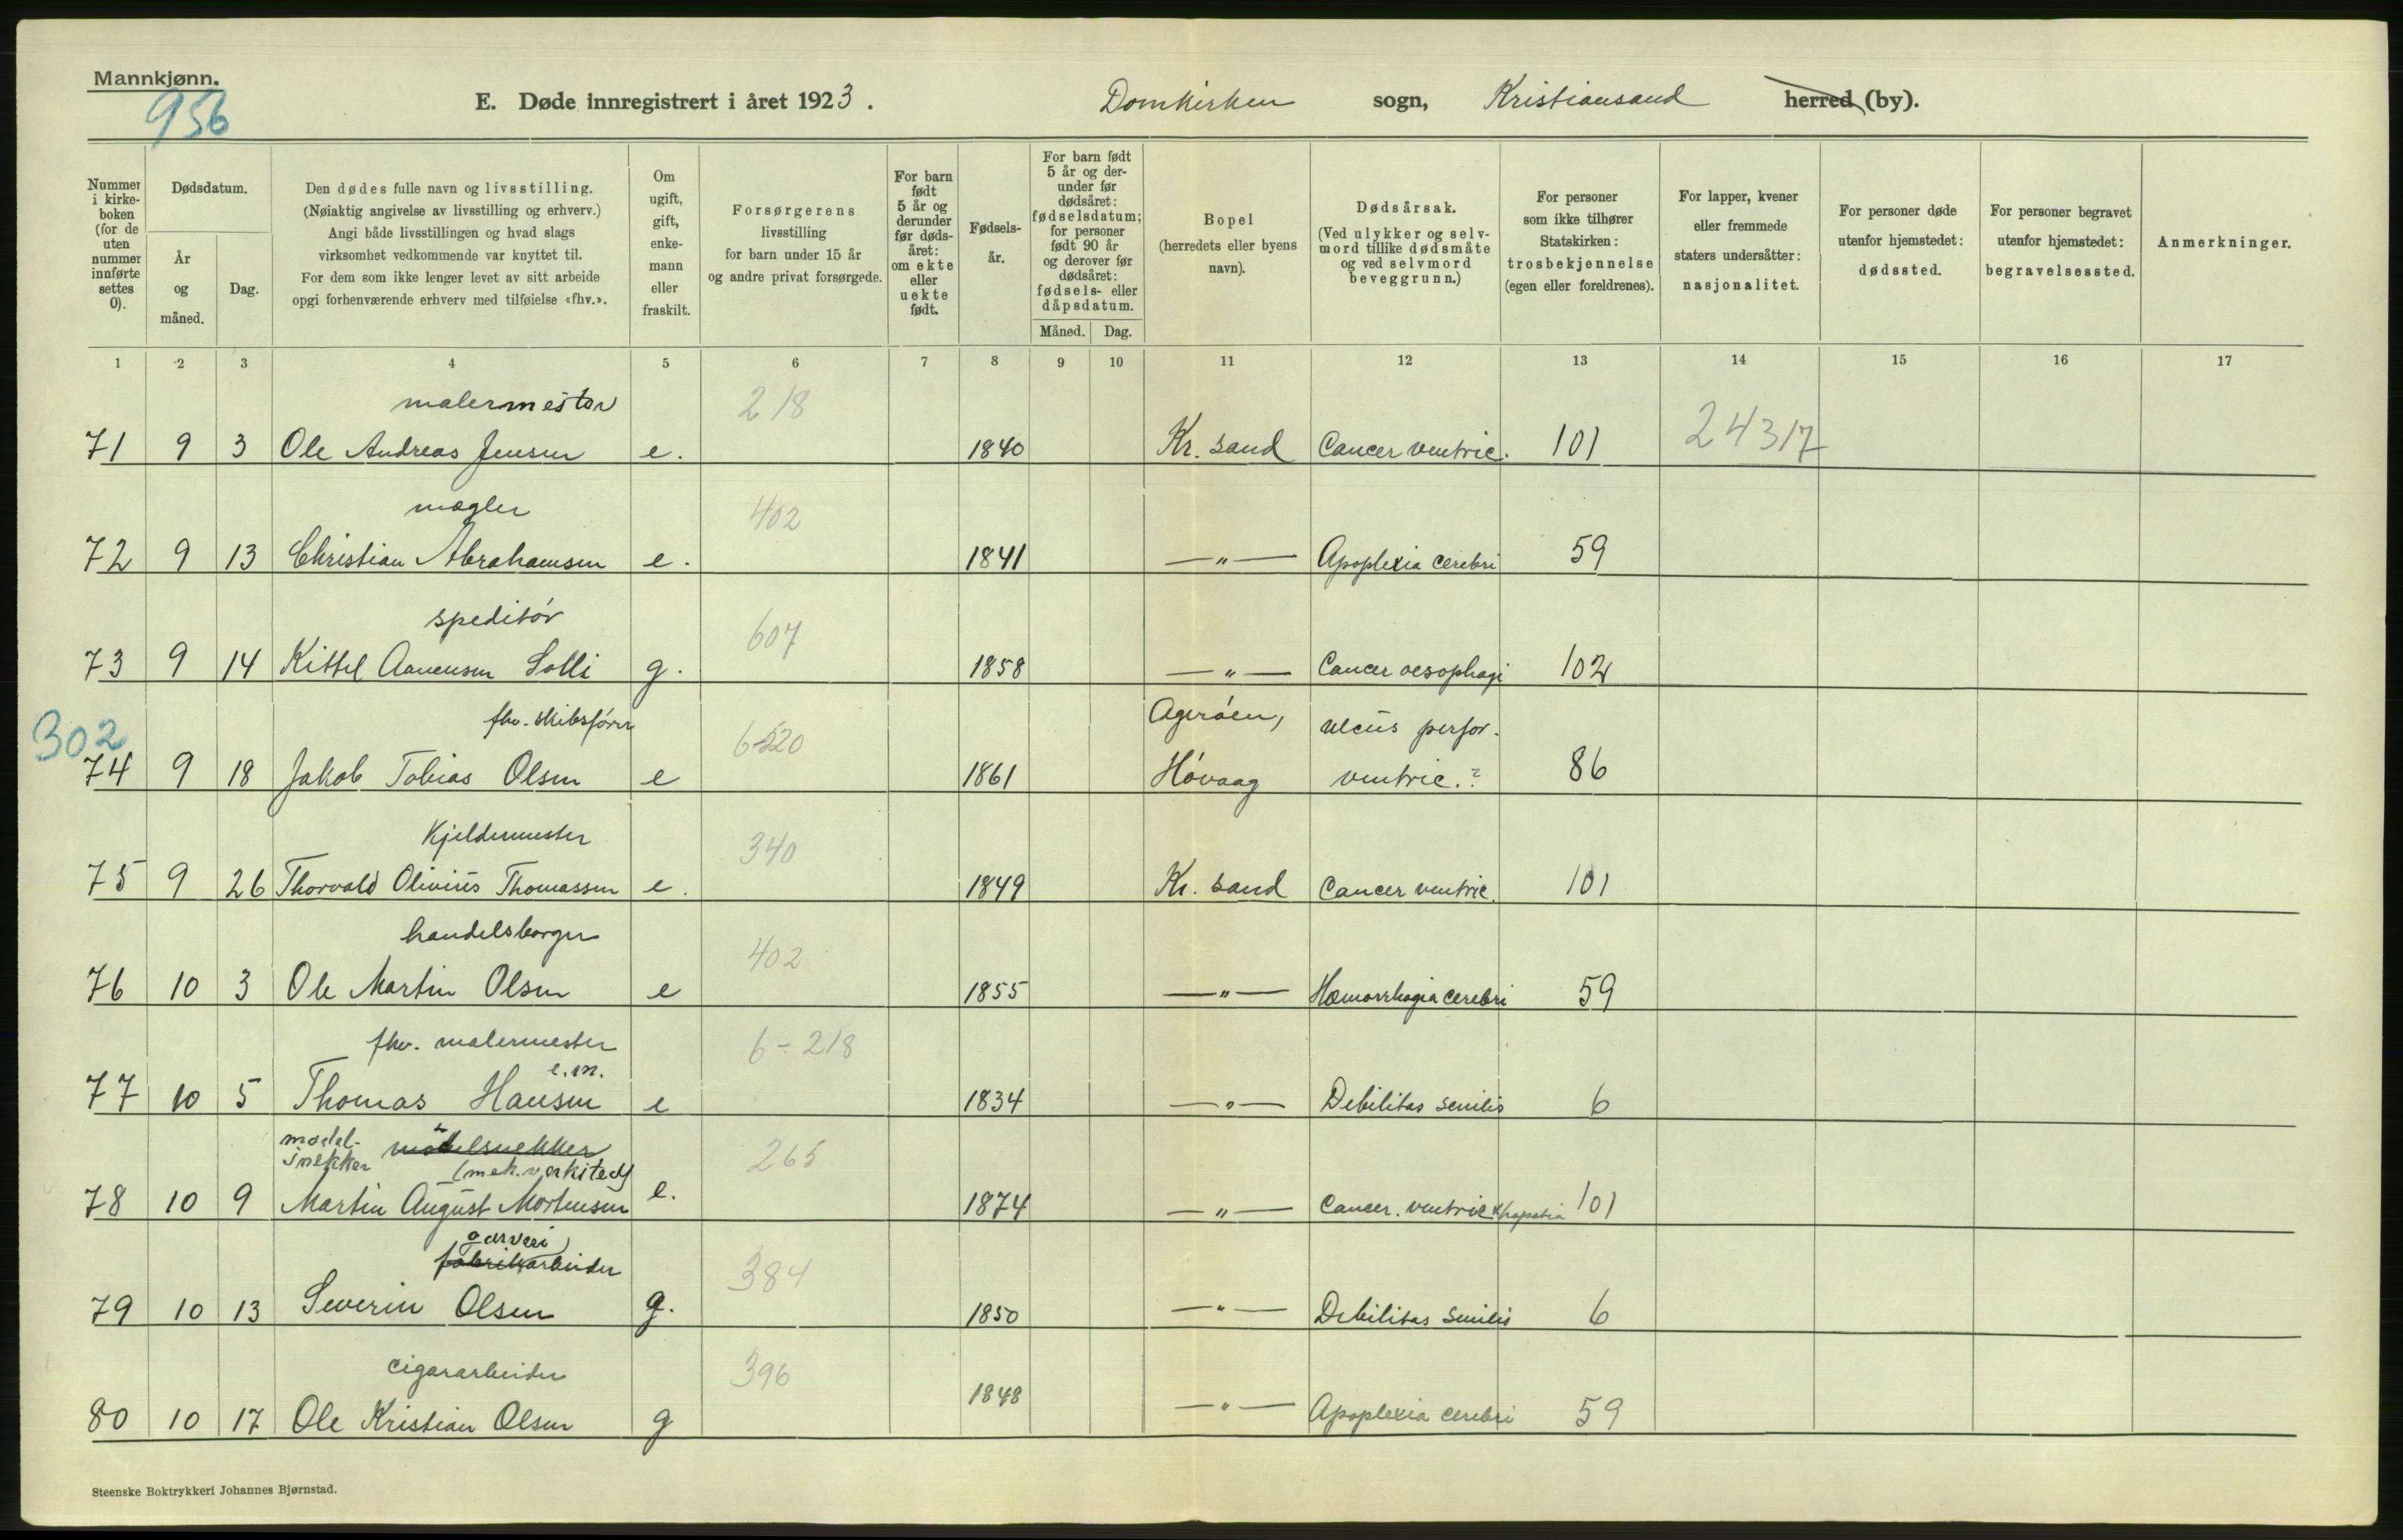 Mannkjønn.
956
E. Døde innregistrert i året 1923.
Domkirken sogn, Kristiansand herred (by).
Nummer i kirkeboken (for de uten nummer innførte settes 0).
Dødsdatum.
År og måned.
Dag.
Den dødes fulle navn og livsstilling.
(Nøiaktig angivelse av livsstilling og erhverv.)
Angi både livsstillingen og hvad slags
virksomhet vedkommende var knyttet til.
For dem som ikke lenger levet av sitt arbeide
opgi forhenværende erhverv med tilføielse «fhv.».
Om ugift, gift, enkemann eller fraskilt.
Forsørgerens
livsstilling
for barn under 15 år
og andre privat forsørgede.
For barn født 5 år og derunder før dødsåret: om ekte eller uekte født.
Fødselsår.
For barn født 5 år og derunder før dødsåret: fødselsdatum; for personer født 90 år og derover før dødsåret: fødsels- eller dåpsdatum.
Måned. Dag.
Bopel
(herredets eller byens
navn).
Dødsårsak.
(Ved ulykker og selvmord tillike dødsmåte og ved selvmord beveggrunn.)
For personer
som ikke tilhører
Statskirken:
trosbekjennelse
(egen eller foreldrenes).
For lapper, kvener
eller fremmede
staters undersåtter:
nasjonalitet.
For personer døde
utenfor hjemstedet:
dødssted.
For personer begravet
utenfor hjemstedet:
begravelsessted.
Anmerkninger.
1 2 3 4 5 6 7 8 9 10 11 12 13 14 15 16 17
malermester 218
71 9 3 Ole Andreas Jensen e. 1840 Kr. sand Cancer ventric. 101 24317
mægler 402
72 9 13 Christian Abrahamsen e. 1841 —"— Apoplexia cerebri 59
speditør 607
73 9 14 Kittel Aanensen Solli g. 1858 —"— Cancer oesophagi 102
302 fhv. skibsfører 6-520 Agerøen, ulcus perfor.
74 9 18 Jakob Tobias Olsen e 1861 Høvaag ventric.? 86
Kjeldermester 340
75 9 26 Thorvald Olivius Thomassen e. 1849 Kr. sand Cancer ventric. 101
handelsborger 402
76 10 3 Ole Martin Olsen e 1855 —"— Hæmorrhagia cerebri 59
fhv. malermester 6-218
e.m.
77 10 5 Thomas Hansen e 1834 —"— Debilitas senilis 6
modelsnekker møbelsnekker 265
(mek. verksted)
78 10 9 Martin August Mortensen e. 1874 —"— Cancer. ventric & hepatis 101
garveri
fabrikarbeider 384
79 10 13 Severin Olsen g. 1850 —"— Debilitas senilis 6
cigararbeider 396
80 10 17 Ole Kristian Olsen g 1848 —"— Apoplexia cerebri 59
Steenske Boktrykkeri Johannes Bjørnstad.